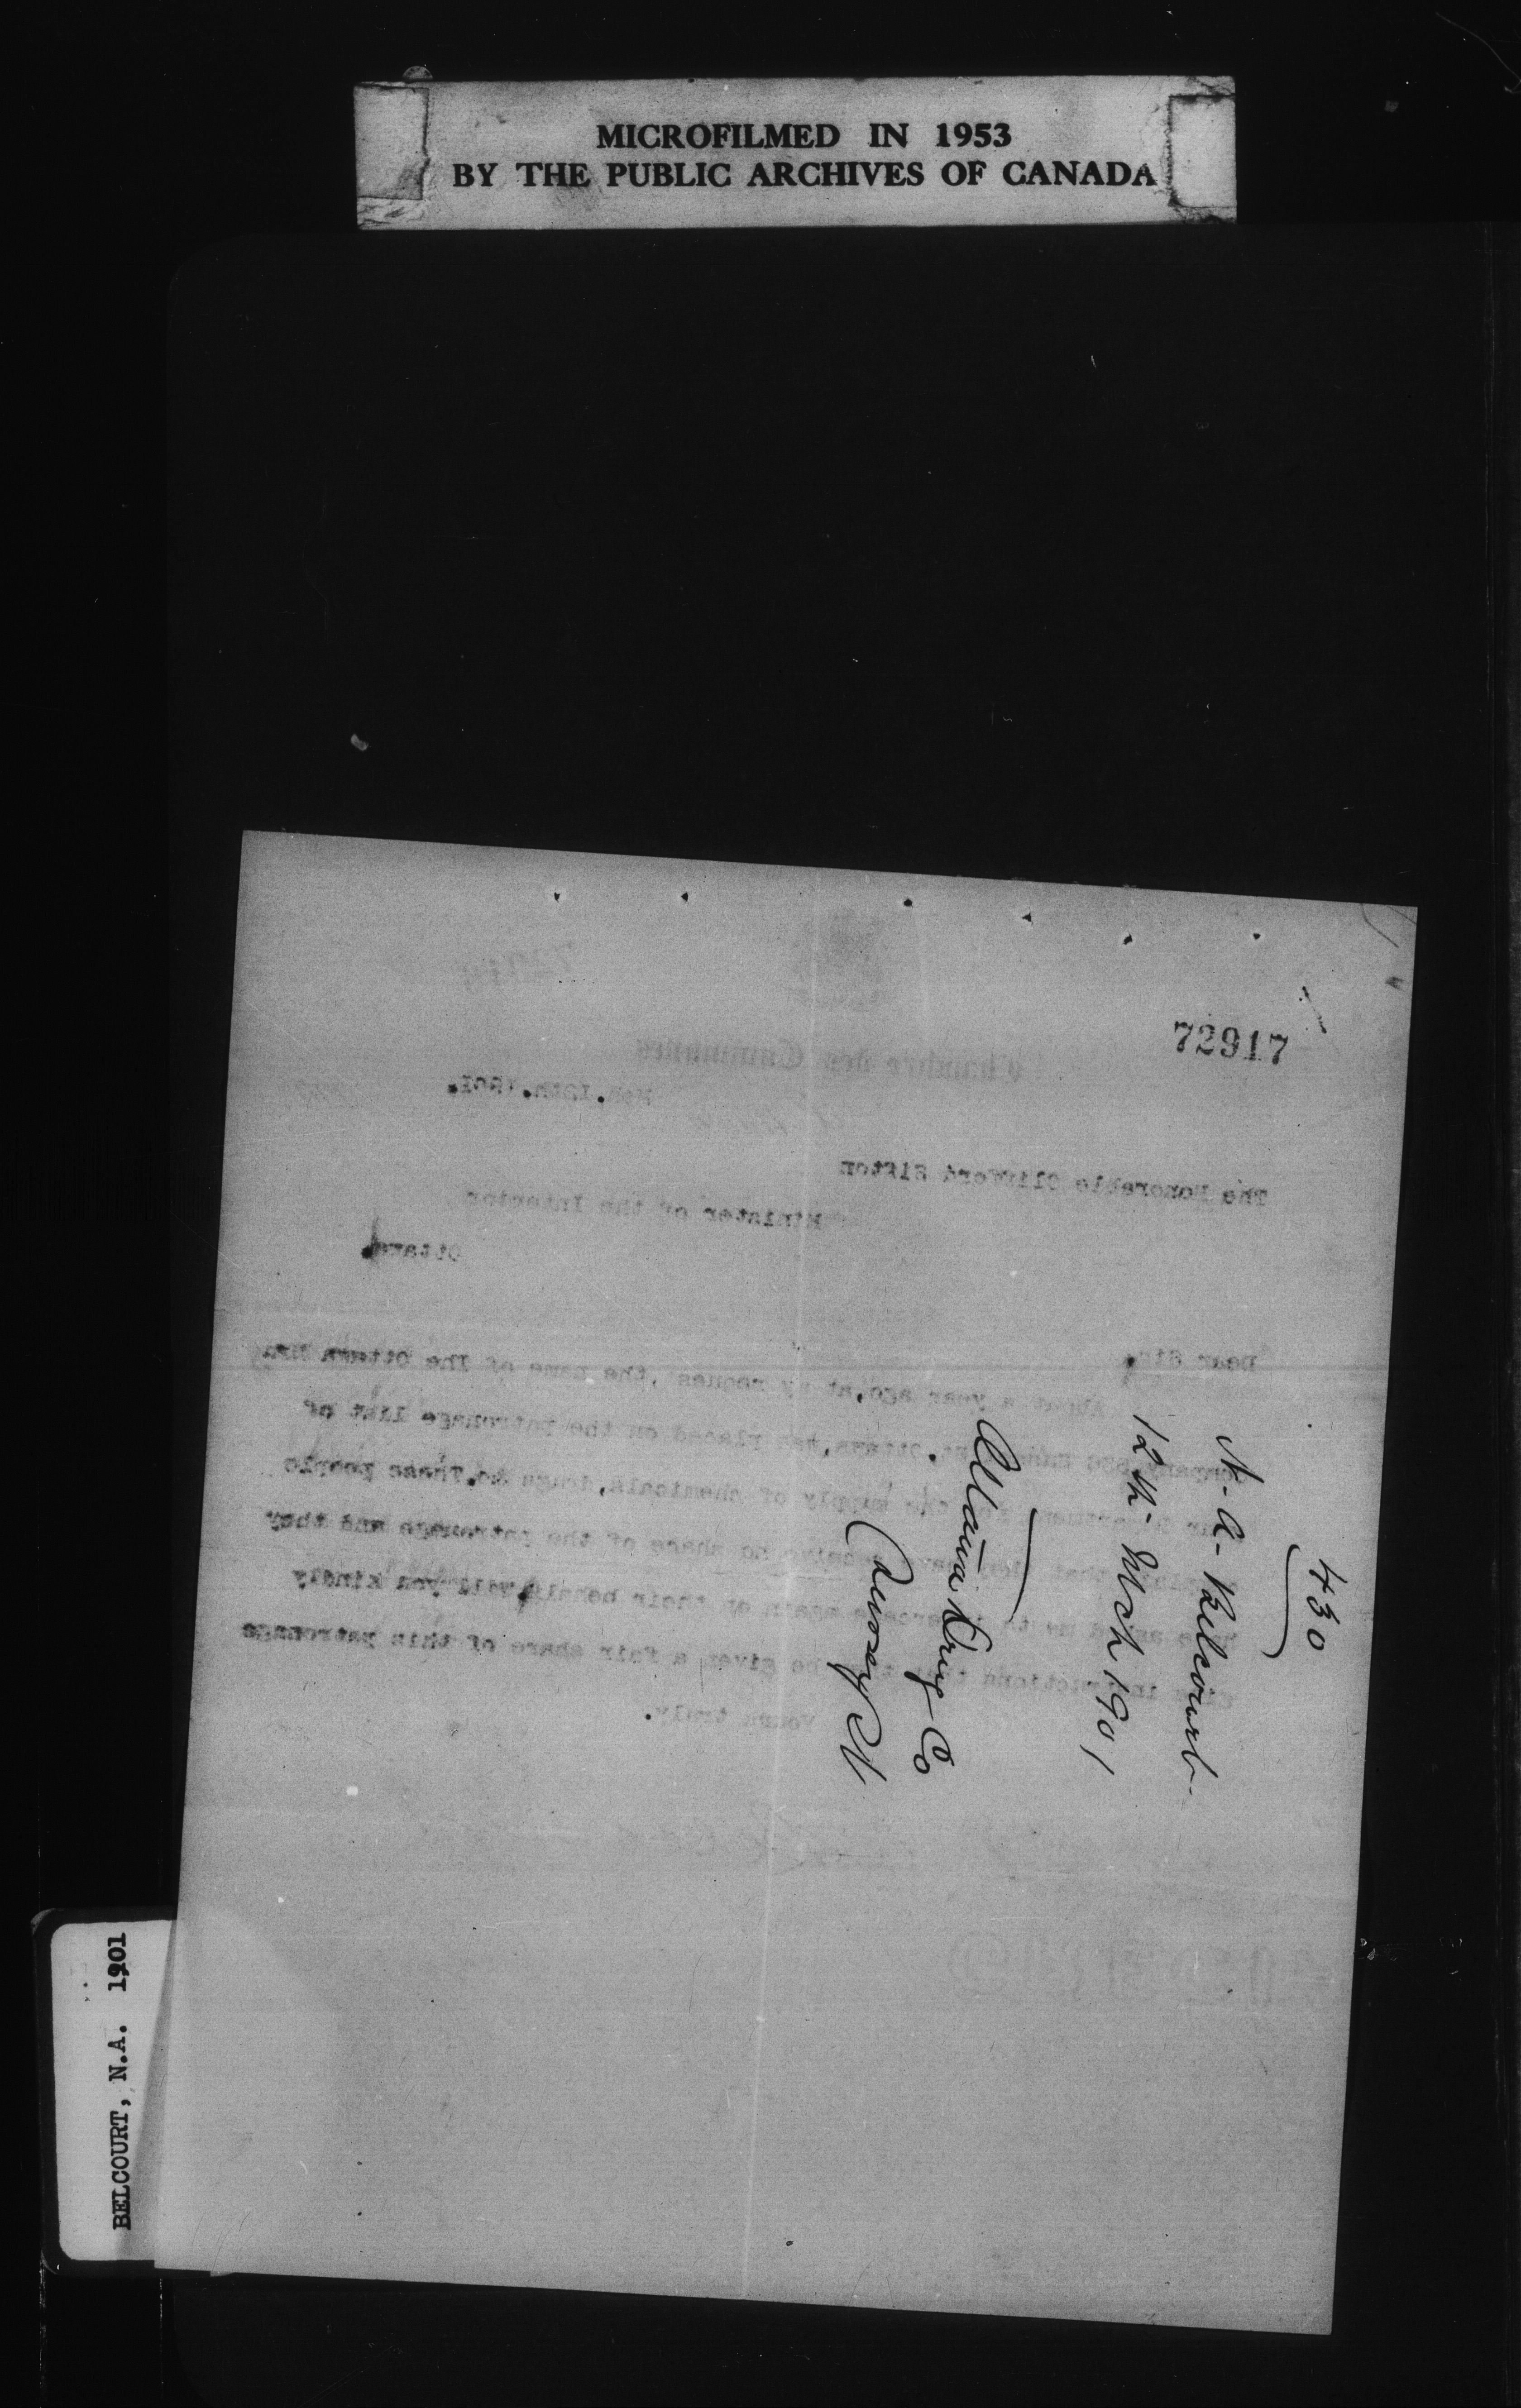 MICROFILMED IN 1953
BY THE PUBLIC ARCHIVES OF CANADA
72917
Chambre des Communes
Mch.12th.1901.
The Honorable Clifford Sifton
Minister of the Interior
Ottawa.
Dear Sir,
About a year ago, at my request, the name of The Ottawa Drug
Company, Ottawa, was placed on the patronage list of
your Department for the supply of chemicals, drugs &c. These people
that they have no share of the patronage and they
have asked me to again on their behalf, will you kindly
give instructions that they be given a fair share of this patronage
Yours truly.
430
N. A. Belcourt
12th. Mch 1901
Ottawa Drug Co
BELCOURT, N.A. 1901